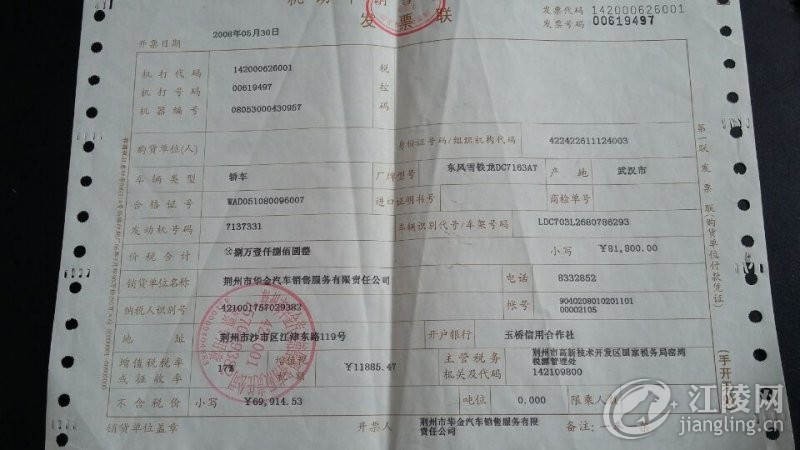 发票联
发票代码 142000626001
发票号码 00619497
开票日期 2008年05月30日
机打代码 142000626001 税
机打号码 00619497 控
机器编号 08053000430957 码
购货单位(人) 身份证号码/组织机构代码 422422611124003
车辆类型 轿车 厂牌型号 东风雪铁龙DC7163AT 产地 武汉市
合格证号 WAD051080096007 进口证明书号 商检单号
发动机号码 7137331 车辆识别代号/车架号码 LDC703L2680786293
价税合计 ⊗捌万壹仟捌佰圆整 小写 ¥81,800.00
销货单位名称 荆州市华金汽车销售服务有限责任公司 电话 8332852
纳税人识别号 421001757029383 账号 9040208010201101
00002105
地址 荆州市沙市区江津东路119号 开户银行 玉桥信用合作社
增值税税率
或征收率 17% 增值税
¥11885.47 主管税务
机关及代码 荆州市高新技术开发区国家税务局窑湾
税源管理处
142109800
不含税价 小写 ¥69,914.53 吨位 0.000 限乘人数
销货单位盖章 开票人 荆州市华金汽车销售服务有限
责任公司 备注:
第一联 发票联(购货单位付款凭证)
(手开无效)
江陵网
jiangling.cn